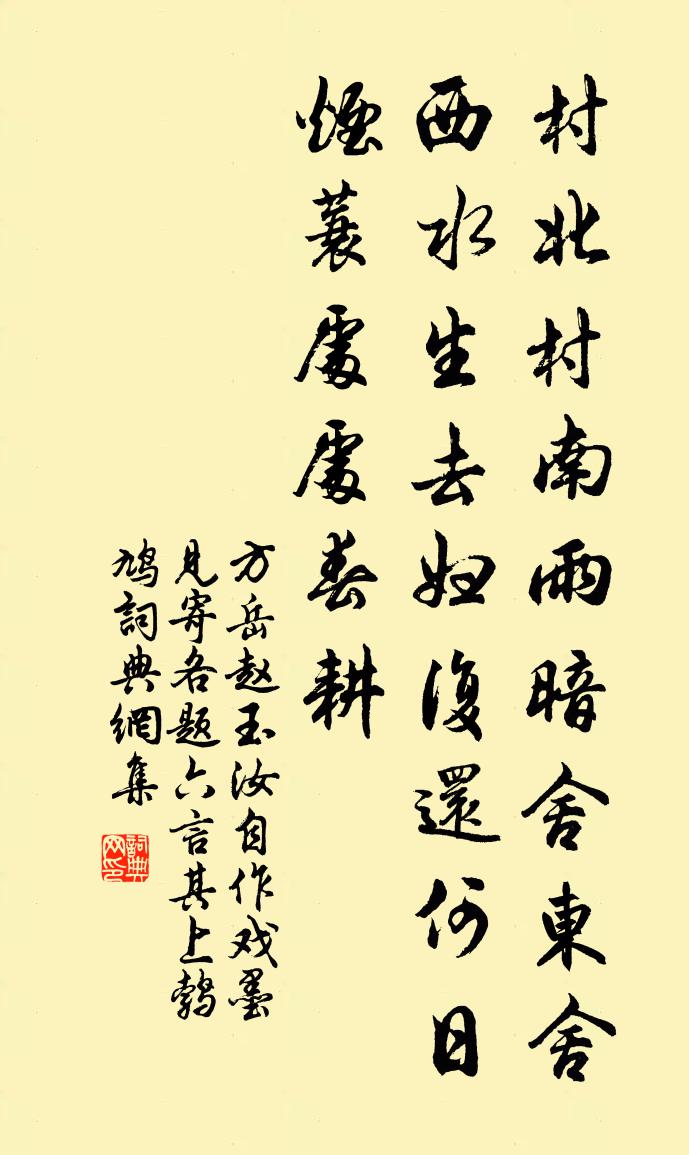 村北村南雨暗舍東舍
西水生去妇復還何日
煙蓑處處春耕
方岳赵玉汝自作戏墨
见寄各题六言其上鹁
鸠詞典網集
詞典
网印